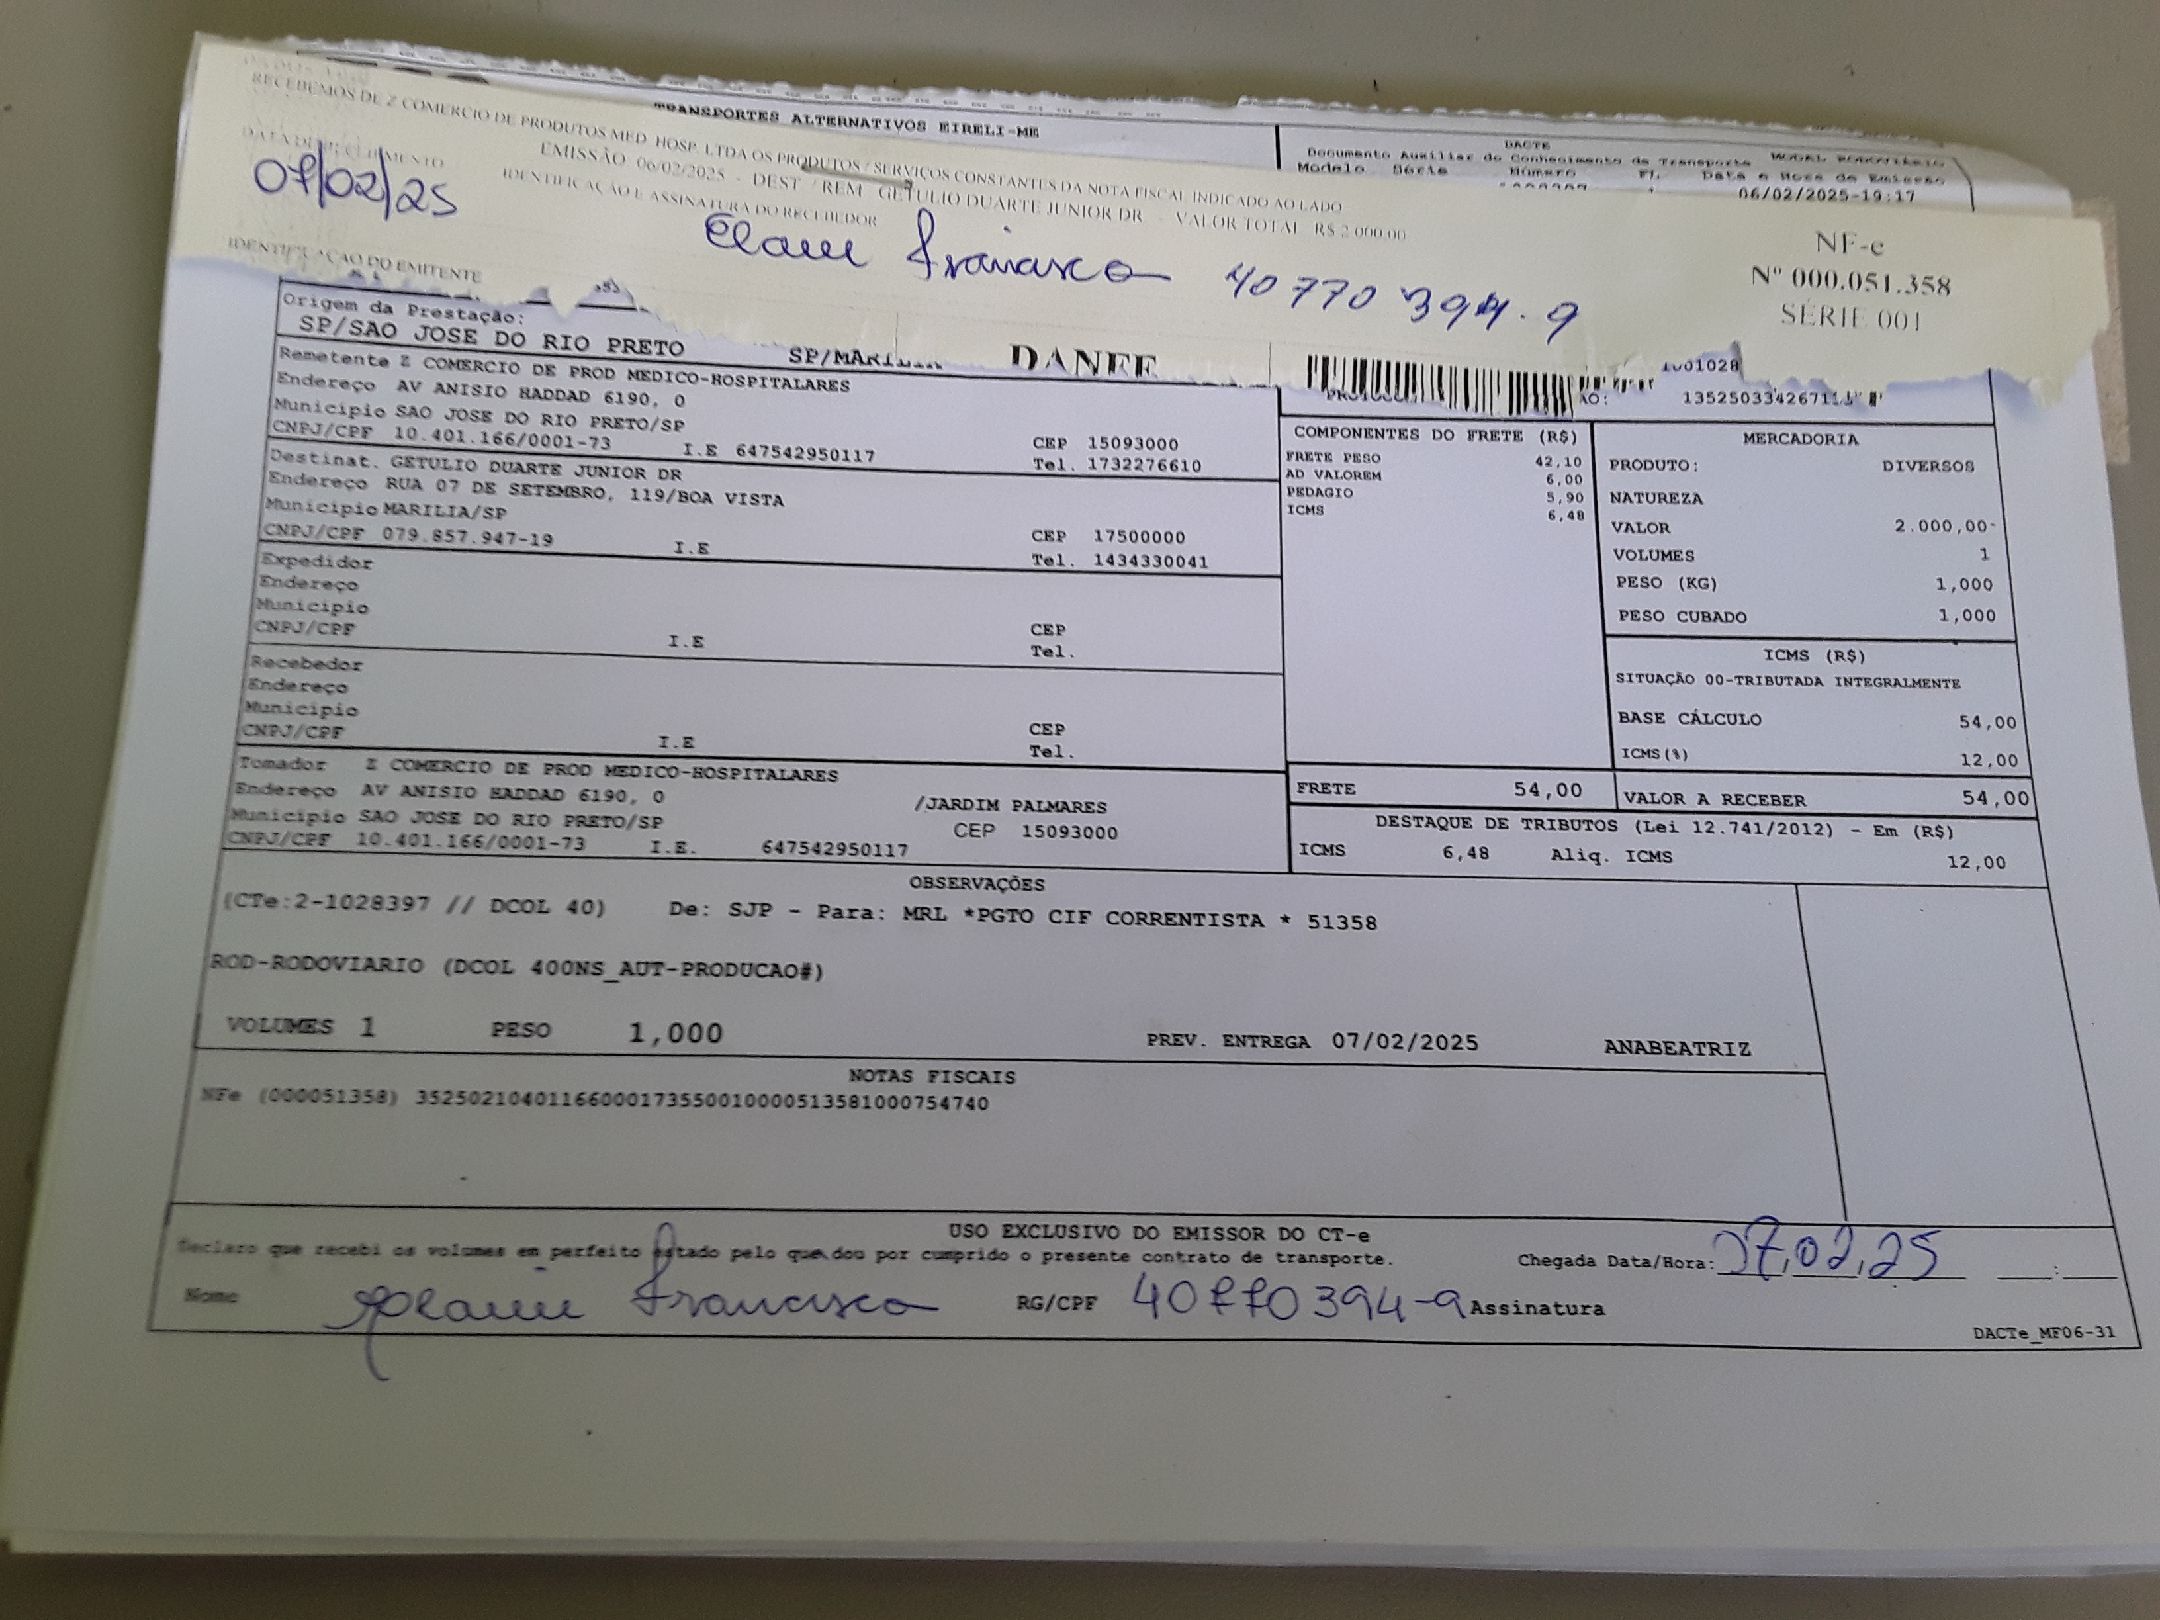 TRANSPORTES ALTERNATIVOS EIRELI-ME
DACTE
Documento Auxiliar do Conhecimento de Transporte MODAL RODOVIÁRIO
Modelo Série Número Fl. Data e Hora de Emissão
06/02/2025-19:17
RECEBEMOS DE Z COMERCIO DE PRODUTOS MED HOSP. LTDA OS PRODUTOS / SERVIÇOS CONSTANTES DA NOTA FISCAL INDICADO AO LADO
EMISSÃO 06/02/2025 - DEST / REM GETULIO DUARTE JUNIOR DR - VALOR TOTAL R$ 2.000,00
DATA DE RECEBIMENTO
07/02/25
IDENTIFICAÇÃO E ASSINATURA DO RECEBEDOR
Francisco 40770394-9
NF-e
Nº 000.051.358
SÉRIE 001
IDENTIFICAÇÃO DO EMITENTE
DANFE
Origem da Prestação:
SP/SAO JOSE DO RIO PRETO
Remetente Z COMERCIO DE PROD MEDICO-HOSPITALARES
Endereço AV ANISIO HADDAD 6190, 0
Município SAO JOSE DO RIO PRETO/SP
CNPJ/CPF 10.401.166/0001-73 I.E 647542950117
CEP 15093000
Tel. 1732276610
Destinat. GETULIO DUARTE JUNIOR DR
Endereço RUA 07 DE SETEMBRO, 119/BOA VISTA
Município MARILIA/SP
CNPJ/CPF 079.857.947-19 I.E
CEP 17500000
Tel. 1434330041
Expedidor
Endereço
Município
CNPJ/CPF I.E
CEP
Tel.
Recebedor
Endereço
Município
CNPJ/CPF I.E
CEP
Tel.
Tomador Z COMERCIO DE PROD MEDICO-HOSPITALARES
Endereço AV ANISIO HADDAD 6190, 0 /JARDIM PALMARES
Município SAO JOSE DO RIO PRETO/SP CEP 15093000
CNPJ/CPF 10.401.166/0001-73 I.E. 647542950117
COMPONENTES DO FRETE (R$)
FRETE PESO 42,10
AD VALOREM 6,00
PEDAGIO 5,90
ICMS 6,48
MERCADORIA
PRODUTO: DIVERSOS
NATUREZA
VALOR 2.000,00
VOLUMES 1
PESO (KG) 1,000
PESO CUBADO 1,000
ICMS (R$)
SITUAÇÃO 00-TRIBUTADA INTEGRALMENTE
BASE CÁLCULO 54,00
ICMS(%) 12,00
FRETE 54,00
VALOR A RECEBER 54,00
DESTAQUE DE TRIBUTOS (Lei 12.741/2012) - Em (R$)
ICMS 6,48 Aliq. ICMS 12,00
OBSERVAÇÕES
(CTe:2-1028397 // DCOL 40) De: SJP - Para: MRL *PGTO CIF CORRENTISTA * 51358
ROD-RODOVIARIO (DCOL 400NS_AUT-PRODUCAO#)
VOLUMES 1 PESO 1,000 PREV. ENTREGA 07/02/2025 ANABEATRIZ
NOTAS FISCAIS
NFe (000051358) 35250210401166000173550010000513581000754740
USO EXCLUSIVO DO EMISSOR DO CT-e
Declaro que recebi os volumes em perfeito estado pelo que dou por cumprido o presente contrato de transporte. Chegada Data/Hora: 07,02,25 __:__
Nome Francisco RG/CPF 40770394-9 Assinatura
DACTe_MF06-31